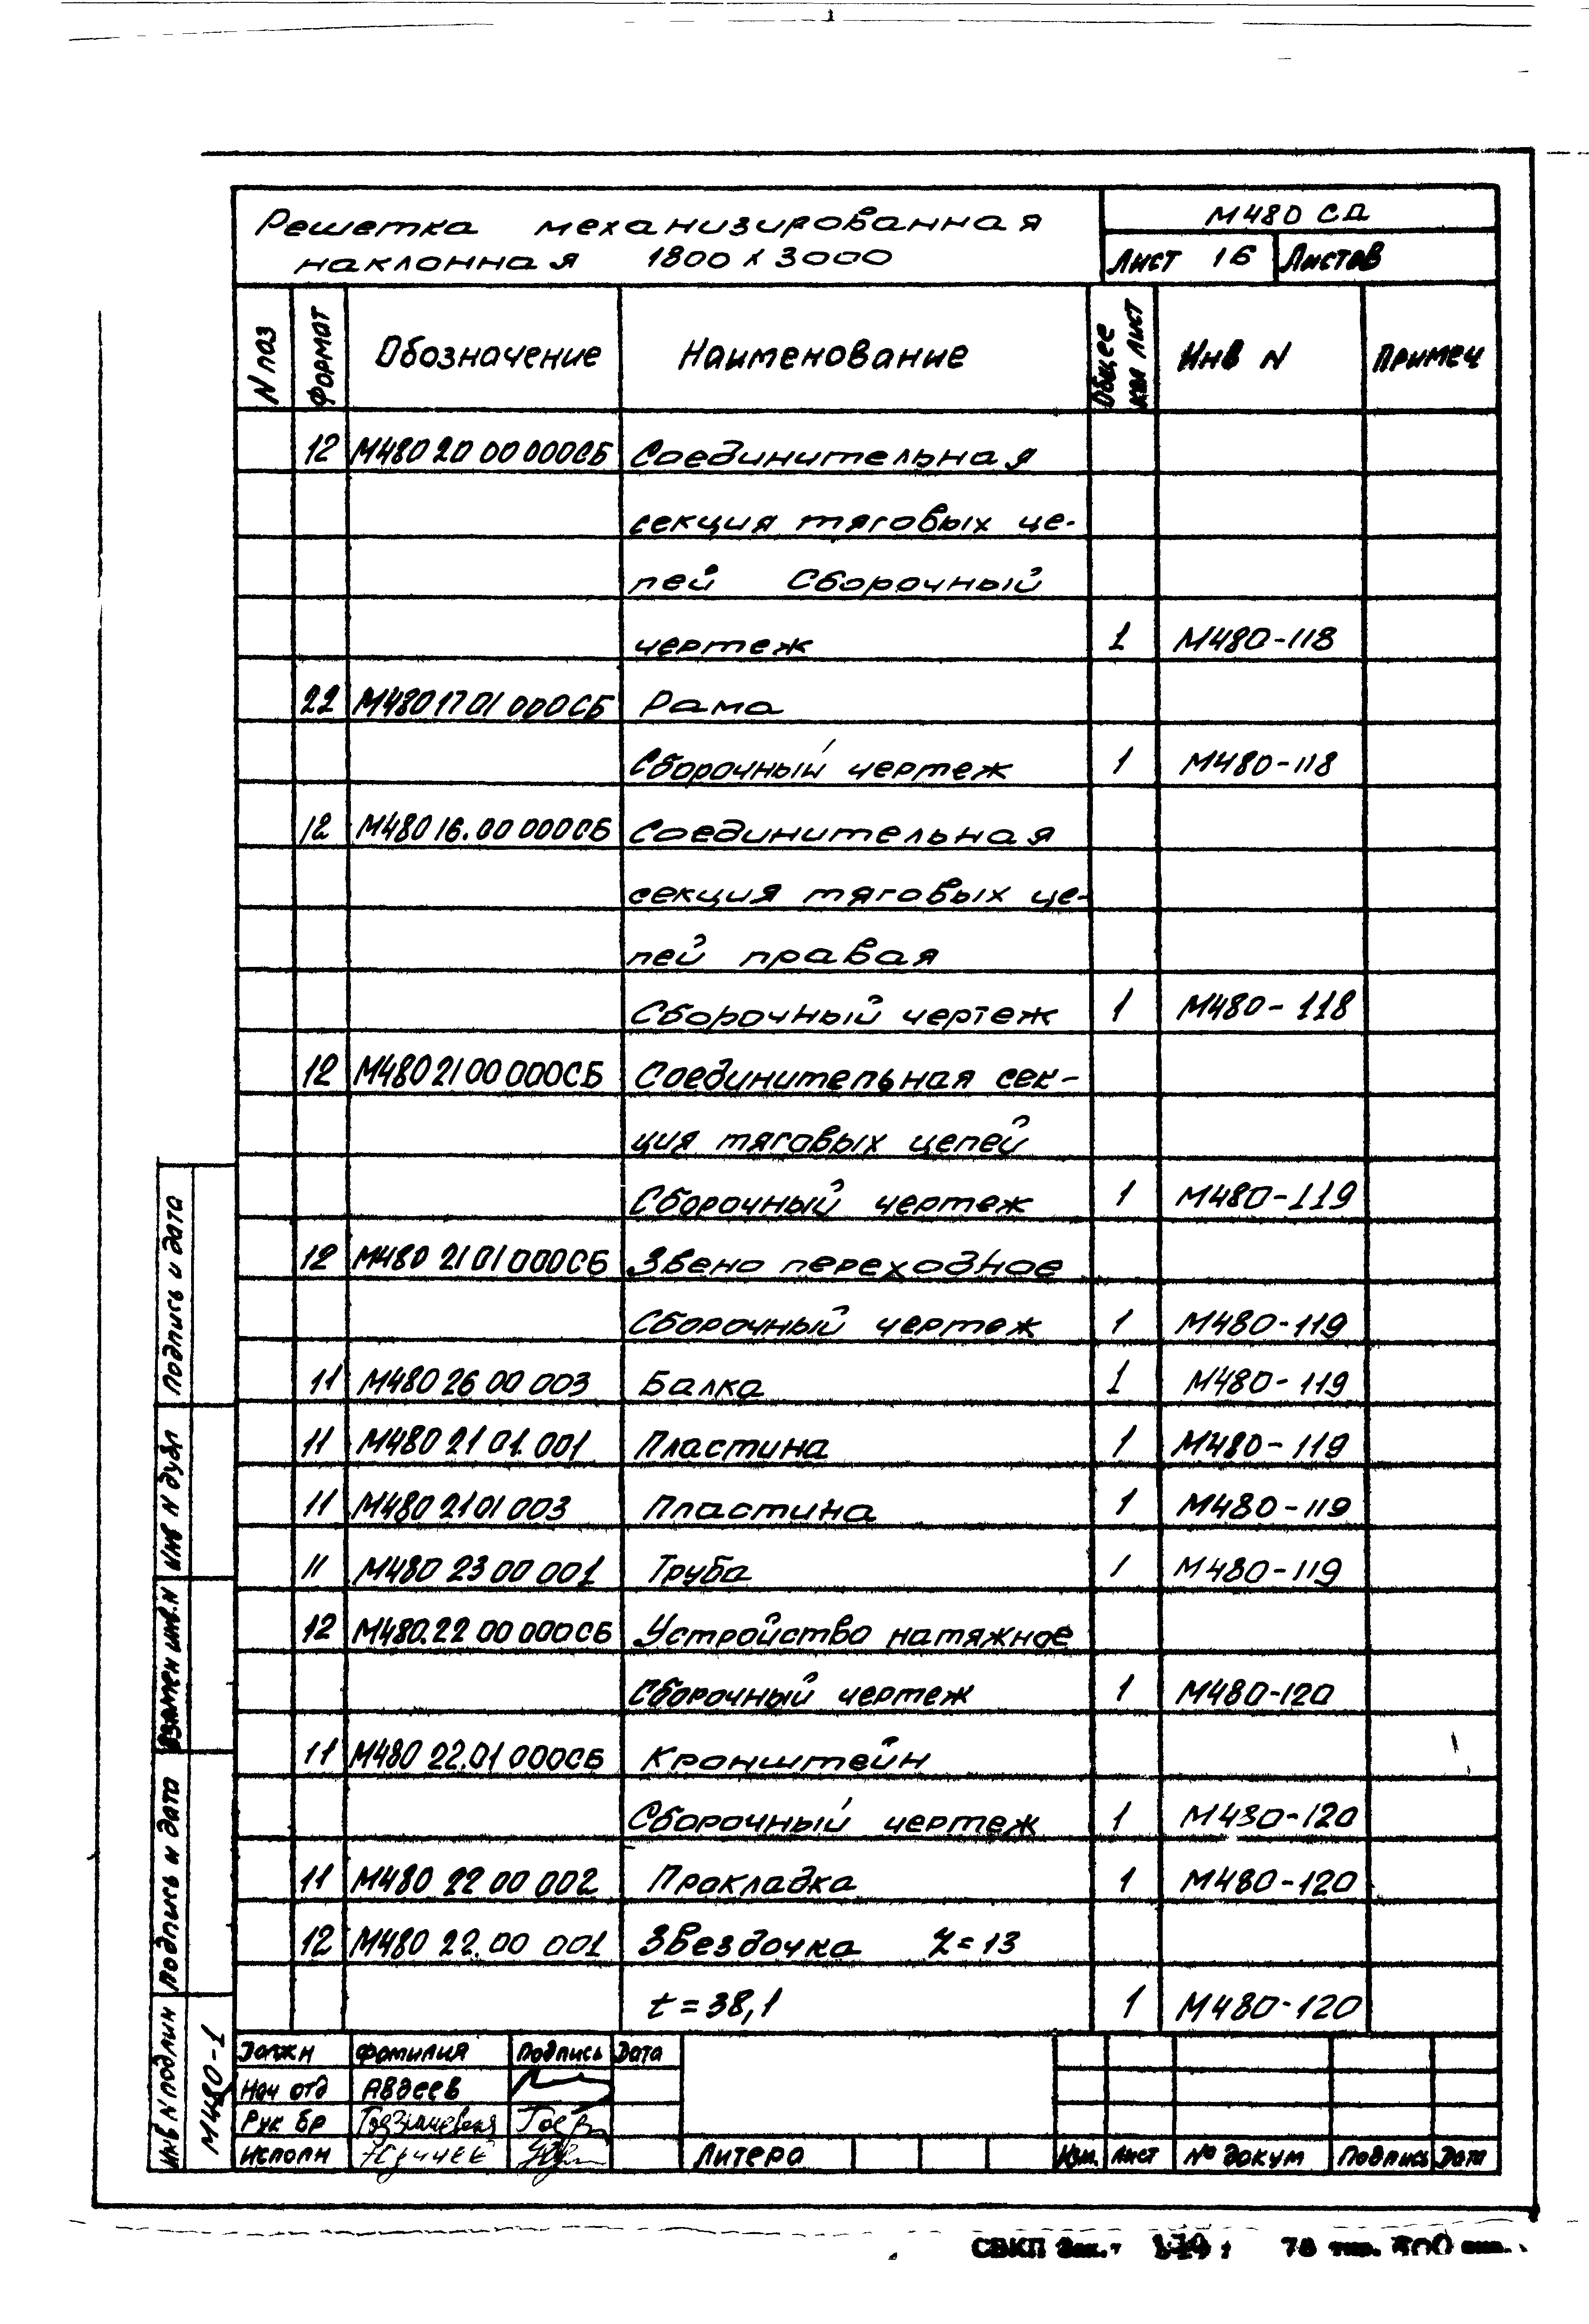 Решетка механизированная
наклонная 1800 х 3000
М480 СД
Лист 16 Листов
N поз Формат Обозначение Наименование Общее кол лист Инв N Примеч
12 М480 20 00 000СБ Соединительная
секция тяговых це-
пей Сборочный
чертеж 1 М480-118
22 М480 17 01 000СБ Рама
Сборочный чертеж 1 М480-118
12 М480 16.00 000СБ Соединительная
секция тяговых це-
пей правая
Сборочный чертеж 1 М480-118
12 М480 21 00 000СБ Соединительная сек-
ция тяговых цепей
Сборочный чертеж 1 М480-119
12 М480 21 01 000СБ Звено переходное
Сборочный чертеж 1 М480-119
11 М480 26 00 003 Балка 1 М480-119
11 М480 21 01.001 Пластина 1 М480-119
11 М480 21 01 003 Пластина 1 М480-119
11 М480 23 00 001 Труба 1 М480-119
12 М480.22 00 000СБ Устройство натяжное
Сборочный чертеж 1 М480-120
11 М480 22.01 000СБ Кронштейн
Сборочный чертеж 1 М480-120
11 М480 22 00 002 Прокладка 1 М480-120
12 М480 22.00 001 Звездочка Z=13
t=38,1 1 М480-120
Должн Фамилия Подпись Дата
Нач отд Авдеев
Рук бр
Исполн
Литера
Изм. Лист № докум Подпись Дата
Подпись и дата
Инв N дубл
Взамен инв.N
Подпись и дата
Инв N подлин
М480-1
СВКП Зак. 78 тир.